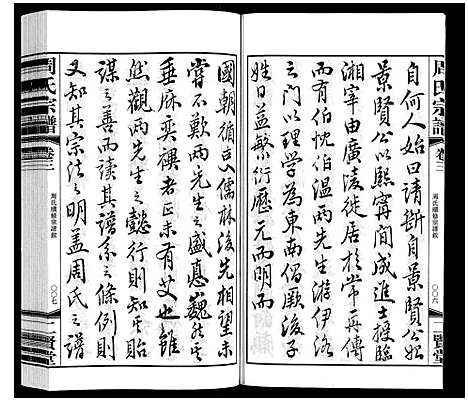 周氏宗譜
卷三
周氏續修宗譜叙
〇〇六
二賢堂
自何人始曰請斷自景賢公始
景賢公以熙寧間成進士授臨
湘宰由廣陵徙居於常再傳
而有伯忱伯温两先生游伊洛
之门以理学為東南倡厥後子
姓日益繁衍歷元而明
國朝彌古儒林後先相望未
嘗不歎两先生之盛德巍然
垂麻奕禩者正未有艾也雖
然觀两先生之懿行則知貽
謀之善而读其譜系之條例則
又知其宗法之明蓋周氏之譜
周氏宗譜
卷三
周氏續修宗譜叙
〇〇七
二賢堂